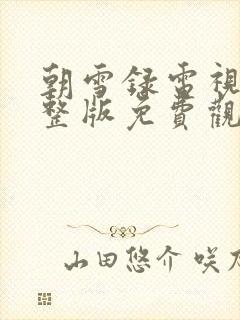 朝雪録電視
整版免費觀
山田悠介 咲